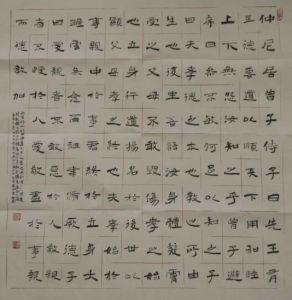 仲尼居曾子侍子曰先王有
至德要道以順天下民用和睦
上下無怨汝知之乎曾子避
席曰參不敏何足以知之子
曰夫孝德之本也教之所由
生也復坐吾語汝身體髮膚
受之父母不敢毀傷孝之始
也立身行道揚名於後世以
顯父母孝之終也夫孝始於
事親中於事君終於立身大
雅云無念爾祖聿修厥德子
曰愛親者不敢惡於人敬親
者不敢慢於人愛敬盡於事親
而德教加